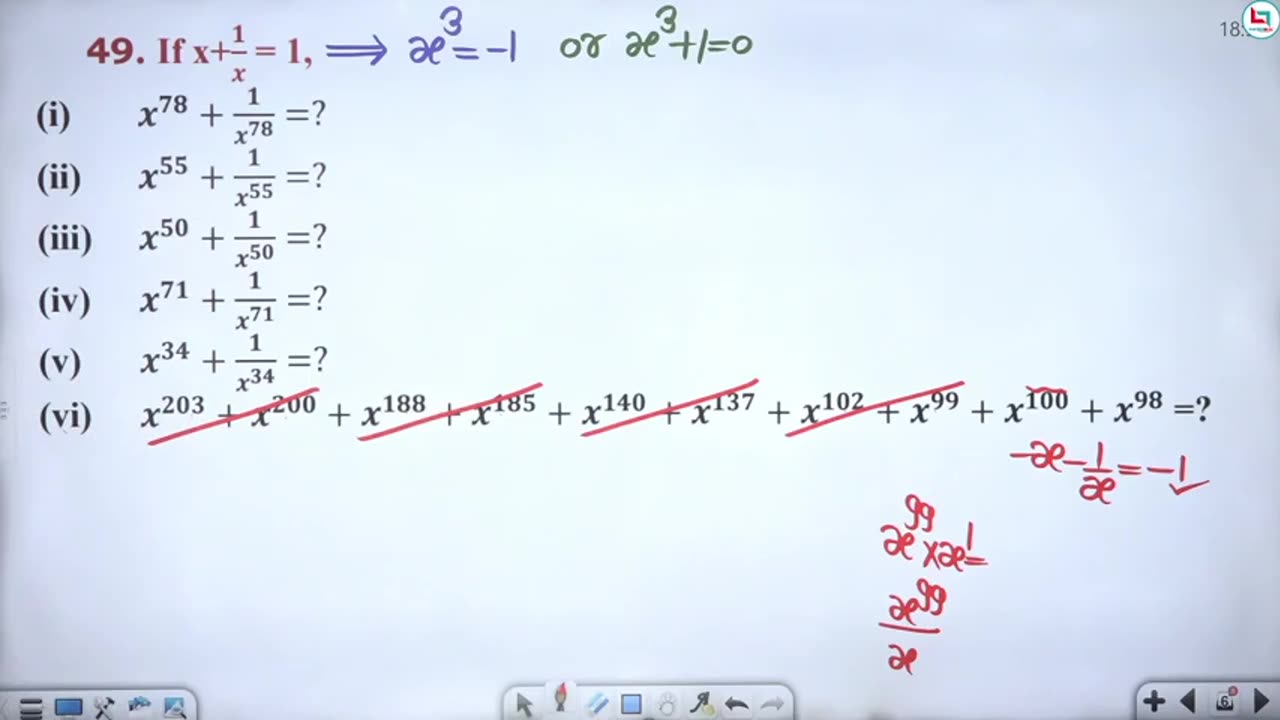 49. If x+1/x = 1, ⟹ x³ = -1 or x³+1=0
18:
(i) x⁷⁸ + 1/x⁷⁸ =?
(ii) x⁵⁵ + 1/x⁵⁵ =?
(iii) x⁵⁰ + 1/x⁵⁰ =?
(iv) x⁷¹ + 1/x⁷¹ =?
(v) x³⁴ + 1/x³⁴ =?
(vi) x²⁰³ + x²⁰⁰ + x¹⁸⁸ + x¹⁸⁵ + x¹⁴⁰ + x¹³⁷ + x¹⁰² + x⁹⁹ + x¹⁰⁰ + x⁹⁸ =?
-x - 1/x = -1
x⁹⁹ × x¹ =
x⁹⁹/x
6